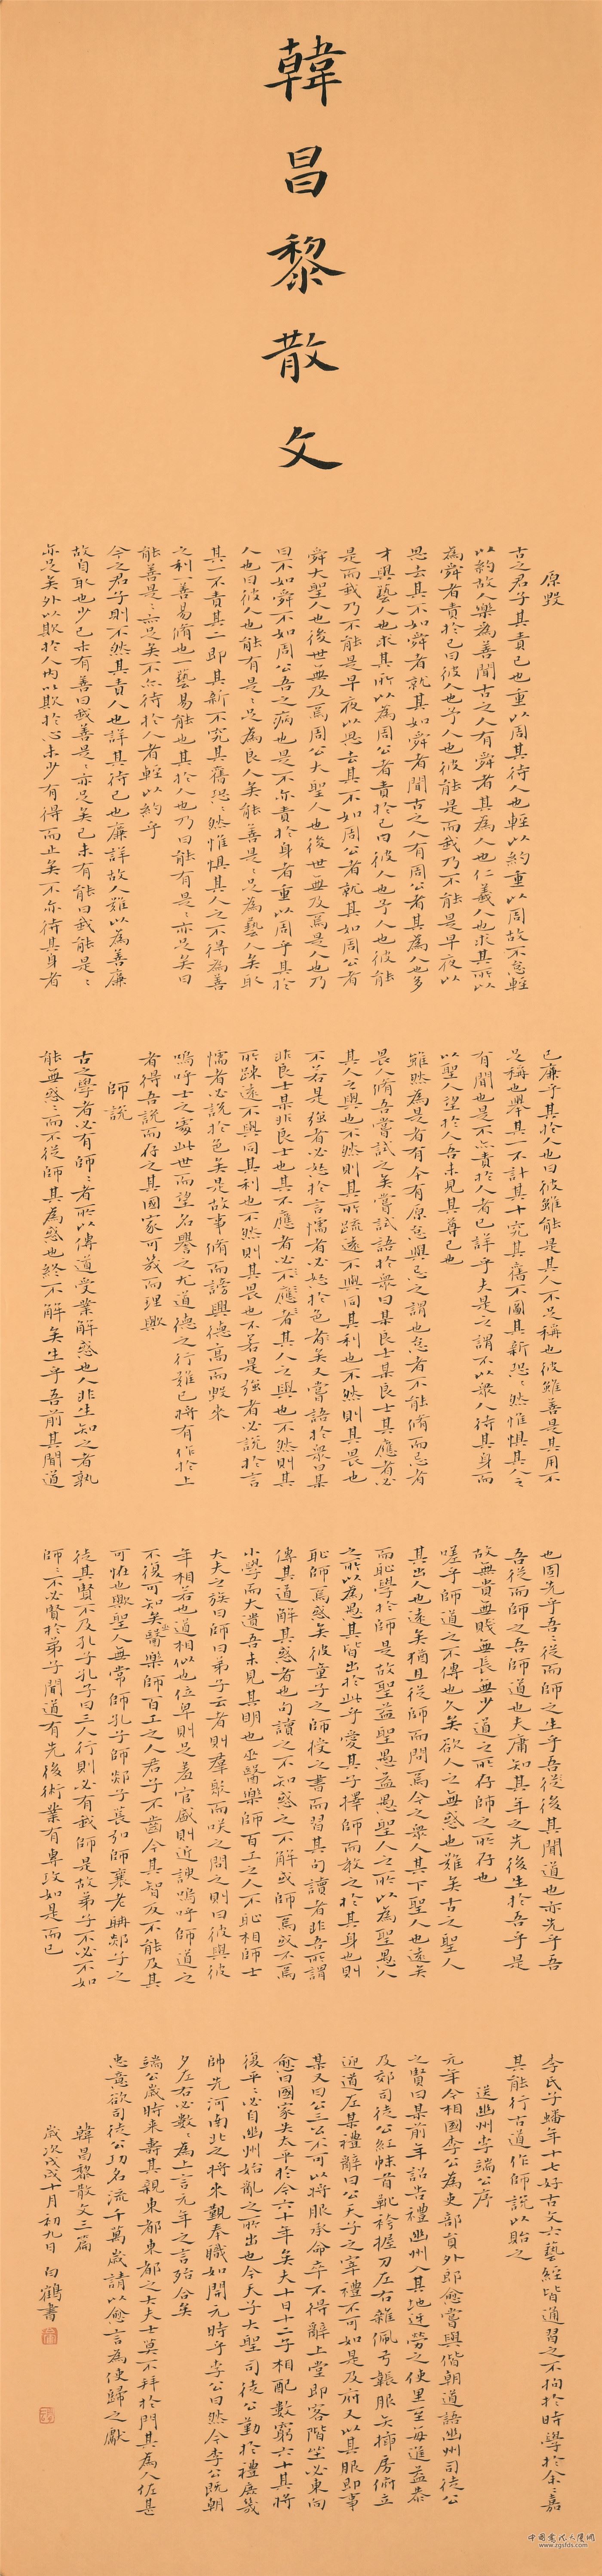 韓昌黎散文
原毀
古之君子其責己也重以周其待人也輕以約重以周故不怠輕
以約故人樂為善聞古之人有舜者其為人也仁義人也求其所以
為舜者責於己曰彼人也予人也彼能是而我乃不能是早夜以
思去其不如舜者就其如舜者聞古之人有周公者其為人也多
才與藝人也求其所以為周公者責於己曰彼人也予人也彼能
是而我乃不能是早夜以思去其不如周公者就其如周公者
舜大聖人也後世無及焉周公大聖人也後世無及焉是人也乃
曰不如舜不如周公吾之病也是不亦責於身者重以周乎其於
人也曰彼人也能有是〻足為良人矣能善是〻足為藝人矣取
其一不責其二即其新不究其舊恐〻然惟懼其人之不得為善
之利一善易脩也一藝易能也其於人也乃曰能有是〻亦足矣曰
能善是〻亦足矣不亦待於人者輕以約乎
今之君子則不然其責人也詳其待己也廉詳故人難以為善廉
故自取也少己未有善曰我善是〻亦足矣己未有能曰我能是〻
亦足矣外以欺於人內以欺於心未少有得而止矣不亦待其身者
已廉乎其於人也曰彼雖能是其人不足稱也彼雖善是其用不
足稱也舉其一不計其十究其舊不圖其新恐〻然惟懼其人之
有聞也是不亦責於人者已詳乎夫是之謂不以衆人待其身而
以聖人望於人吾未見其尊己也
雖然為是者有本有原怠與忌之謂也怠者不能脩而忌者
畏人脩吾嘗試之矣嘗試語於衆曰某良士某良士其應者必
其人之與也不然則其所疏遠不與同其利也不然則其畏也
不若是強者必怒於言懦者必怒於色矣又嘗語於衆曰某
非良士某非良士也其不應者必不應者其人之與也不然則其
所疎遠不與同其利也不然則其畏也不若是強者必說於言
懦者必說於色矣是故事脩而謗興德高而毀來
嗚呼士之處此世而望名譽之光道德之行難已將有作於上
者得吾說而存之其國家可幾而理歟
師說
古之學者必有師〻者所以傳道受業解惑也人非生知之者孰
能無惑〻而不從師其為惑也終不解矣生乎吾前其聞道
也固先乎吾〻從而師之生乎吾後其聞道也亦先乎吾
吾從而師之吾師道也夫庸知其年之先後生於吾乎是
故無貴無賤無長無少道之所存師之所存也
嗟乎師道之不傳也久矣欲人之無惑也難矣古之聖人
其出人也遠矣猶且從師而問焉今之衆人其下聖人也遠矣
而恥學於師是故聖益聖愚益愚聖人之所以為聖愚人
之所以為愚其皆出於此乎愛其子擇師而教之於其身也則
恥師焉惑矣彼童子之師授之書而習其句讀者非吾所謂
傳其道解其惑者也句讀之不知惑之不解或師焉或不焉
小學而大遺吾未見其明也巫醫樂師百工之人不恥相師士
大夫之族曰師曰弟子云者則群聚而笑之問之則曰彼與彼
年相若也道相似也位卑則足羞官盛則近諛嗚呼師道之
不復可知矣巫醫樂師百工之人君子不齒今其智乃不能及其
可怪也歟聖人無常師孔子師郯子萇弘師襄老聃郯子之
徒其賢不及孔子孔子曰三人行則必有我師是故弟子不必不如
師〻不必賢於弟子聞道有先後術業有專攻如是而已
李氏子蟠年十七好古文六藝經皆通習之不拘於時學於余〻嘉
其能行古道作師說以貽之
送幽州李端公序
元年今相國李公為吏部員外郎愈嘗與偕朝道語幽州司徒公
之賢曰某前年詔告禮幽州入其地迓勞之使里至每進益恭
及郊司徒公紅帓首鞾袴握刀左右雜佩弓韔服矢插房俯立
迎道左某禮辭曰公天子之宰禮不可如是及府又以其服即事
某又曰公三公不可以將服承命卒不得辭上堂即客階坐必東向
愈曰國家失太平於今六十年矣夫十日十二子相配數窮六十其將
復平〻必自幽州始亂之所出也今天子大聖司徒公勤於禮庶幾
帥先河南北之將來覲奉職如開元時乎李公曰然今李公既朝
夕左右必數〻為上言元年之言殆合矣
端公歲時來壽其親東都東都之大夫士莫不拜於門其為人佐甚
忠意欲司徒公功名流千萬歲請以愈言為使歸之獻
韓昌黎散文三篇
歲次戊戌十月初九日 白鶴書
www.zgsfds.com